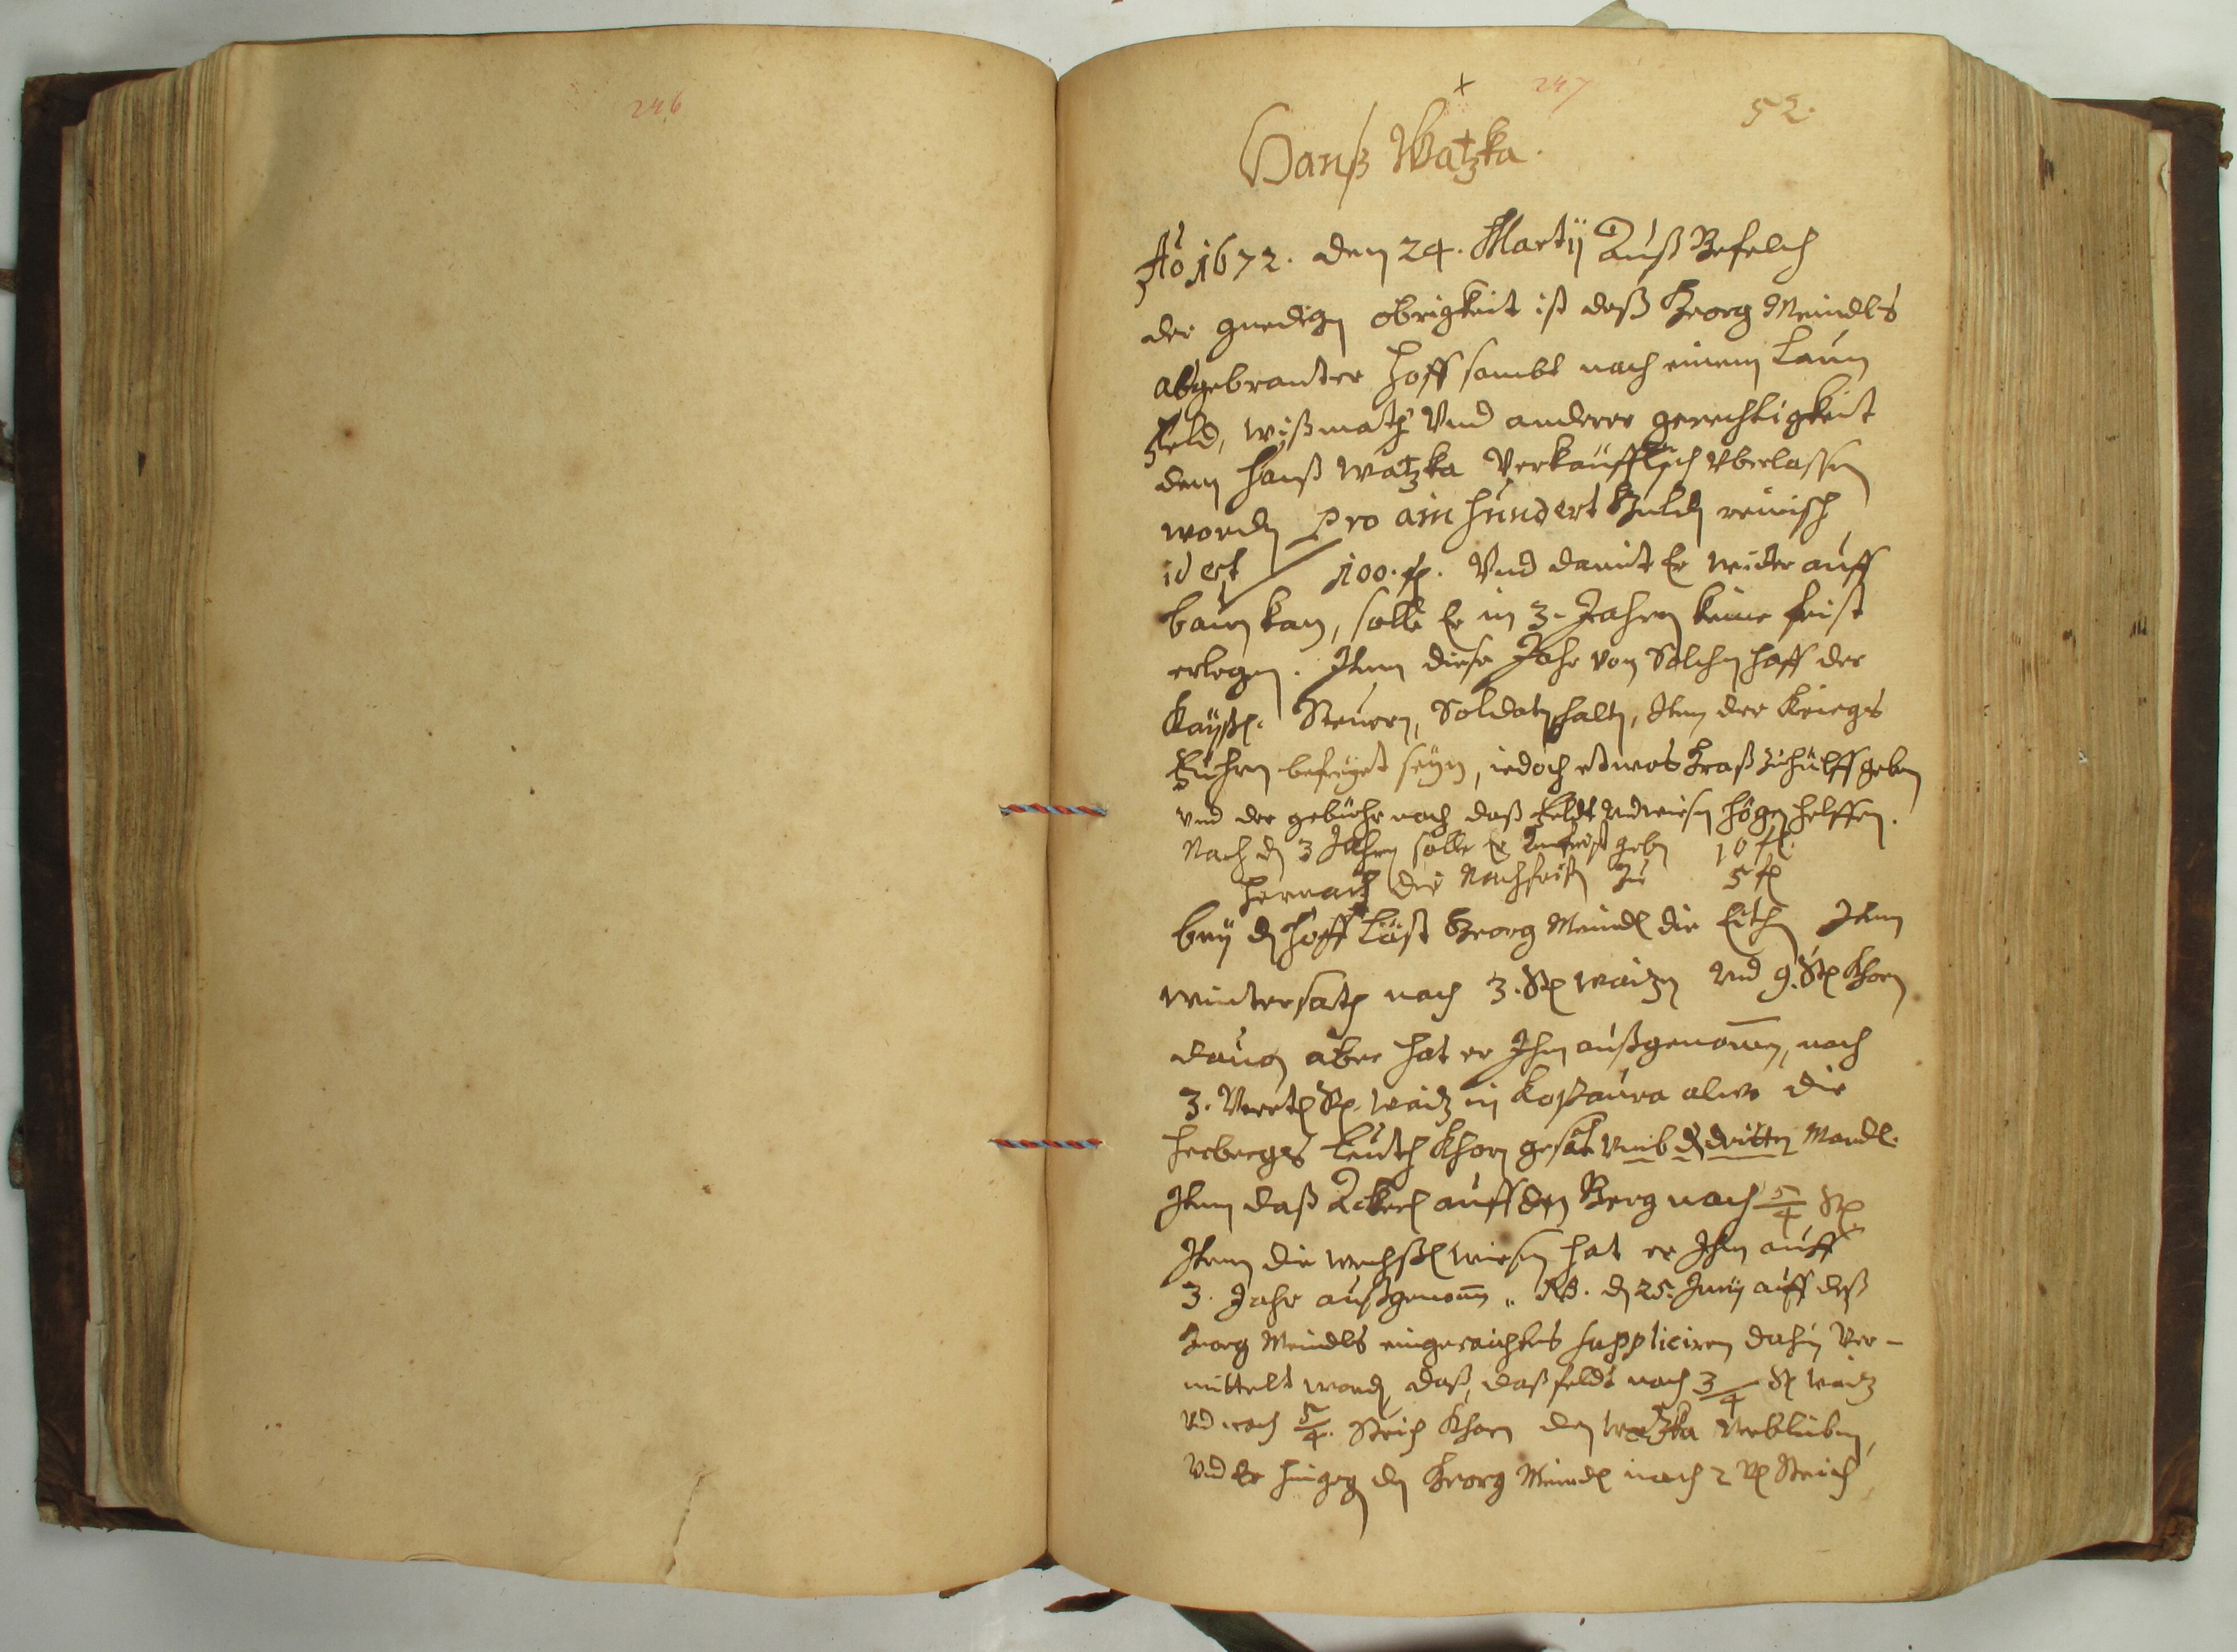 246
247
52.
Hanß Watzka.
Aō 1672. den 24. Martij Auß Befelch
der gnedign obrigkeit ist deß Georg Meindls
abgebranter Hoff sambt nach einem Laun
Feld, wißmath Vnd anderer gerechtigkeit
dem Hanß Watzka Verkäufflich vberlassen
wordn pro ain hundert Guldn reinisch
id est 100. fl. Vnd damit Er wider auff
baun kan, solle Er in 3. Jahrn keine frist
erlegen. Item diese Jahr von Solchen Hoff der
Kayßl. Steuern, Soldatn halten, Item der Kriegs
Fuhrn befreyet seyn, iedoch etwas Graß zu hülff geben
vnd der gebühr nach daß Feldt vnd wiesn högen helffen.
Nach dn 3 Jahrn solle Er Anfrist gebn 10 fl.
hernach die Nachfristn zu 5 fl
bey dn Hoff Läst Georg Meindl die Eithn Item
wintersath nach 3. Str waitzn vnd 9. Str Khorn
dauon aber hat er Ihm außgenomēn, nach
3. Viertl Str. waitz in alwo die
herbergs Leuth Khorn gesät vmb dn dritten Mandl.
Item daß Ackerl auff den Berg nach 5/4 Str
Item die wiesen hat er Ihm auff
3. Jahr außgenomē. NB. dn 25. Junij auff deß
Georg Meindls eingeraichtes suppliciren dahin Ver-
mittelt wordn, daß, daß feldt nach 3/4 Str waitz
vnd nach 5/4. Strich Khorn den Watzka Verbleiben,
Vnd Er hingegn dn Georg Meindl nach 2 Strich